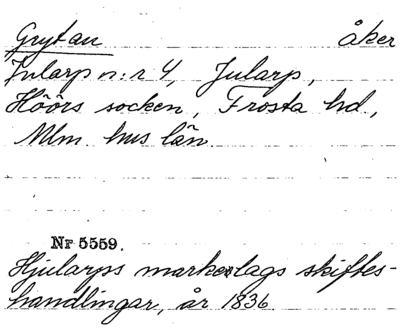 Grytan åker
Jularp n:r 4, Jularp,
Höörs socken, Frosta hd,
Mlm. hus län
Nr 5559.
Hjularps markerlags skiftes-
handlingar, år 1836